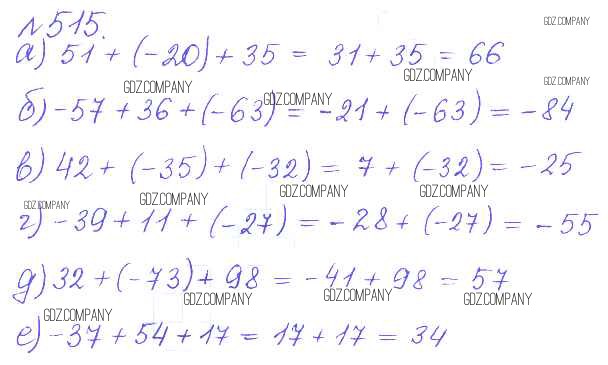 №515.
GDZ.COMPANY
а) 51 + (-20) + 35 = 31 + 35 = 66
GDZ.COMPANY GDZ.COMPANY GDZ.COMPANY
б) -57 + 36 + (-63) = -21 + (-63) = -84
GDZ.COMPANY
в) 42 + (-35) + (-32) = 7 + (-32) = -25
GDZ.COMPANY GDZ.COMPANY GDZ.COMPANY GDZ.COMPANY
г) -39 + 11 + (-27) = -28 + (-27) = -55
д) 32 + (-73) + 98 = -41 + 98 = 57
GDZ.COMPANY GDZ.COMPANY GDZ.COMPANY
GDZ.COMPANY
е) -37 + 54 + 17 = 17 + 17 = 34